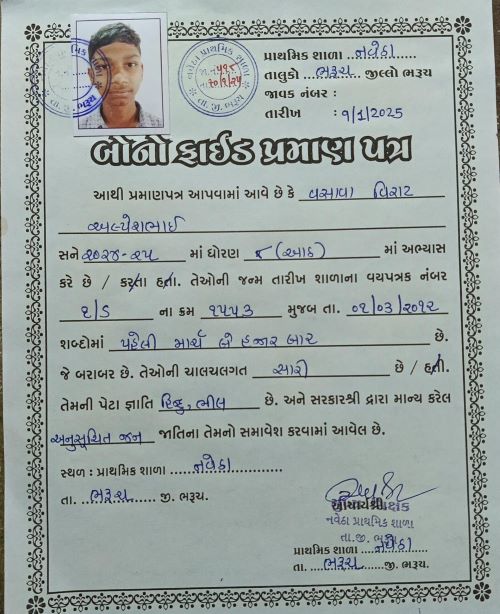 પ્રાથમિક શાળા નવેઠા
તાલુકો ભરૂચ જીલ્લો ભરૂચ
જાવક નંબર :
તારીખ : ૧/1/2025
નવેઠા પ્રાથમિક શાળા
તા. જી. ભરૂચ
બોનોફાઈડ પ્રમાણ પત્ર
આથી પ્રમાણપત્ર આપવામાં આવે છે કે વસાવા વિરાટ
અલ્પેશભાઈ
સને ૨૦૨૪-૨૫ માં ધોરણ ૮ (આઠ) માં અભ્યાસ
કરે છે / કરતા હતા. તેઓની જન્મ તારીખ શાળાના વયપત્રક નંબર
૬/ડ ના ક્રમ ૧૫૫૩ મુજબ તા. ૦૧/૦૩/૨૦૧૨
શબ્દોમાં પહેલી માર્ચ બે હજાર બાર છે.
જે બરાબર છે. તેઓની ચાલચલગત સારી છે / હતી.
તેમની પેટા જ્ઞાતિ હિન્દુ, ભીલ છે. અને સરકારશ્રી દ્રારા માન્ય કરેલ
અનુસૂચિત જન જાતિના તેમનો સમાવેશ કરવામાં આવેલ છે.
સ્થળ : પ્રાથમિક શાળા નવેઠા
તા. ભરૂચ જી. ભરૂચ.
આચાર્યશ્રી
નવેઠા પ્રાથમિક શાળા
તા.જી. ભરૂચ
પ્રાથમિક શાળા નવેઠા
તા. ભરૂચ જી. ભરૂચ.